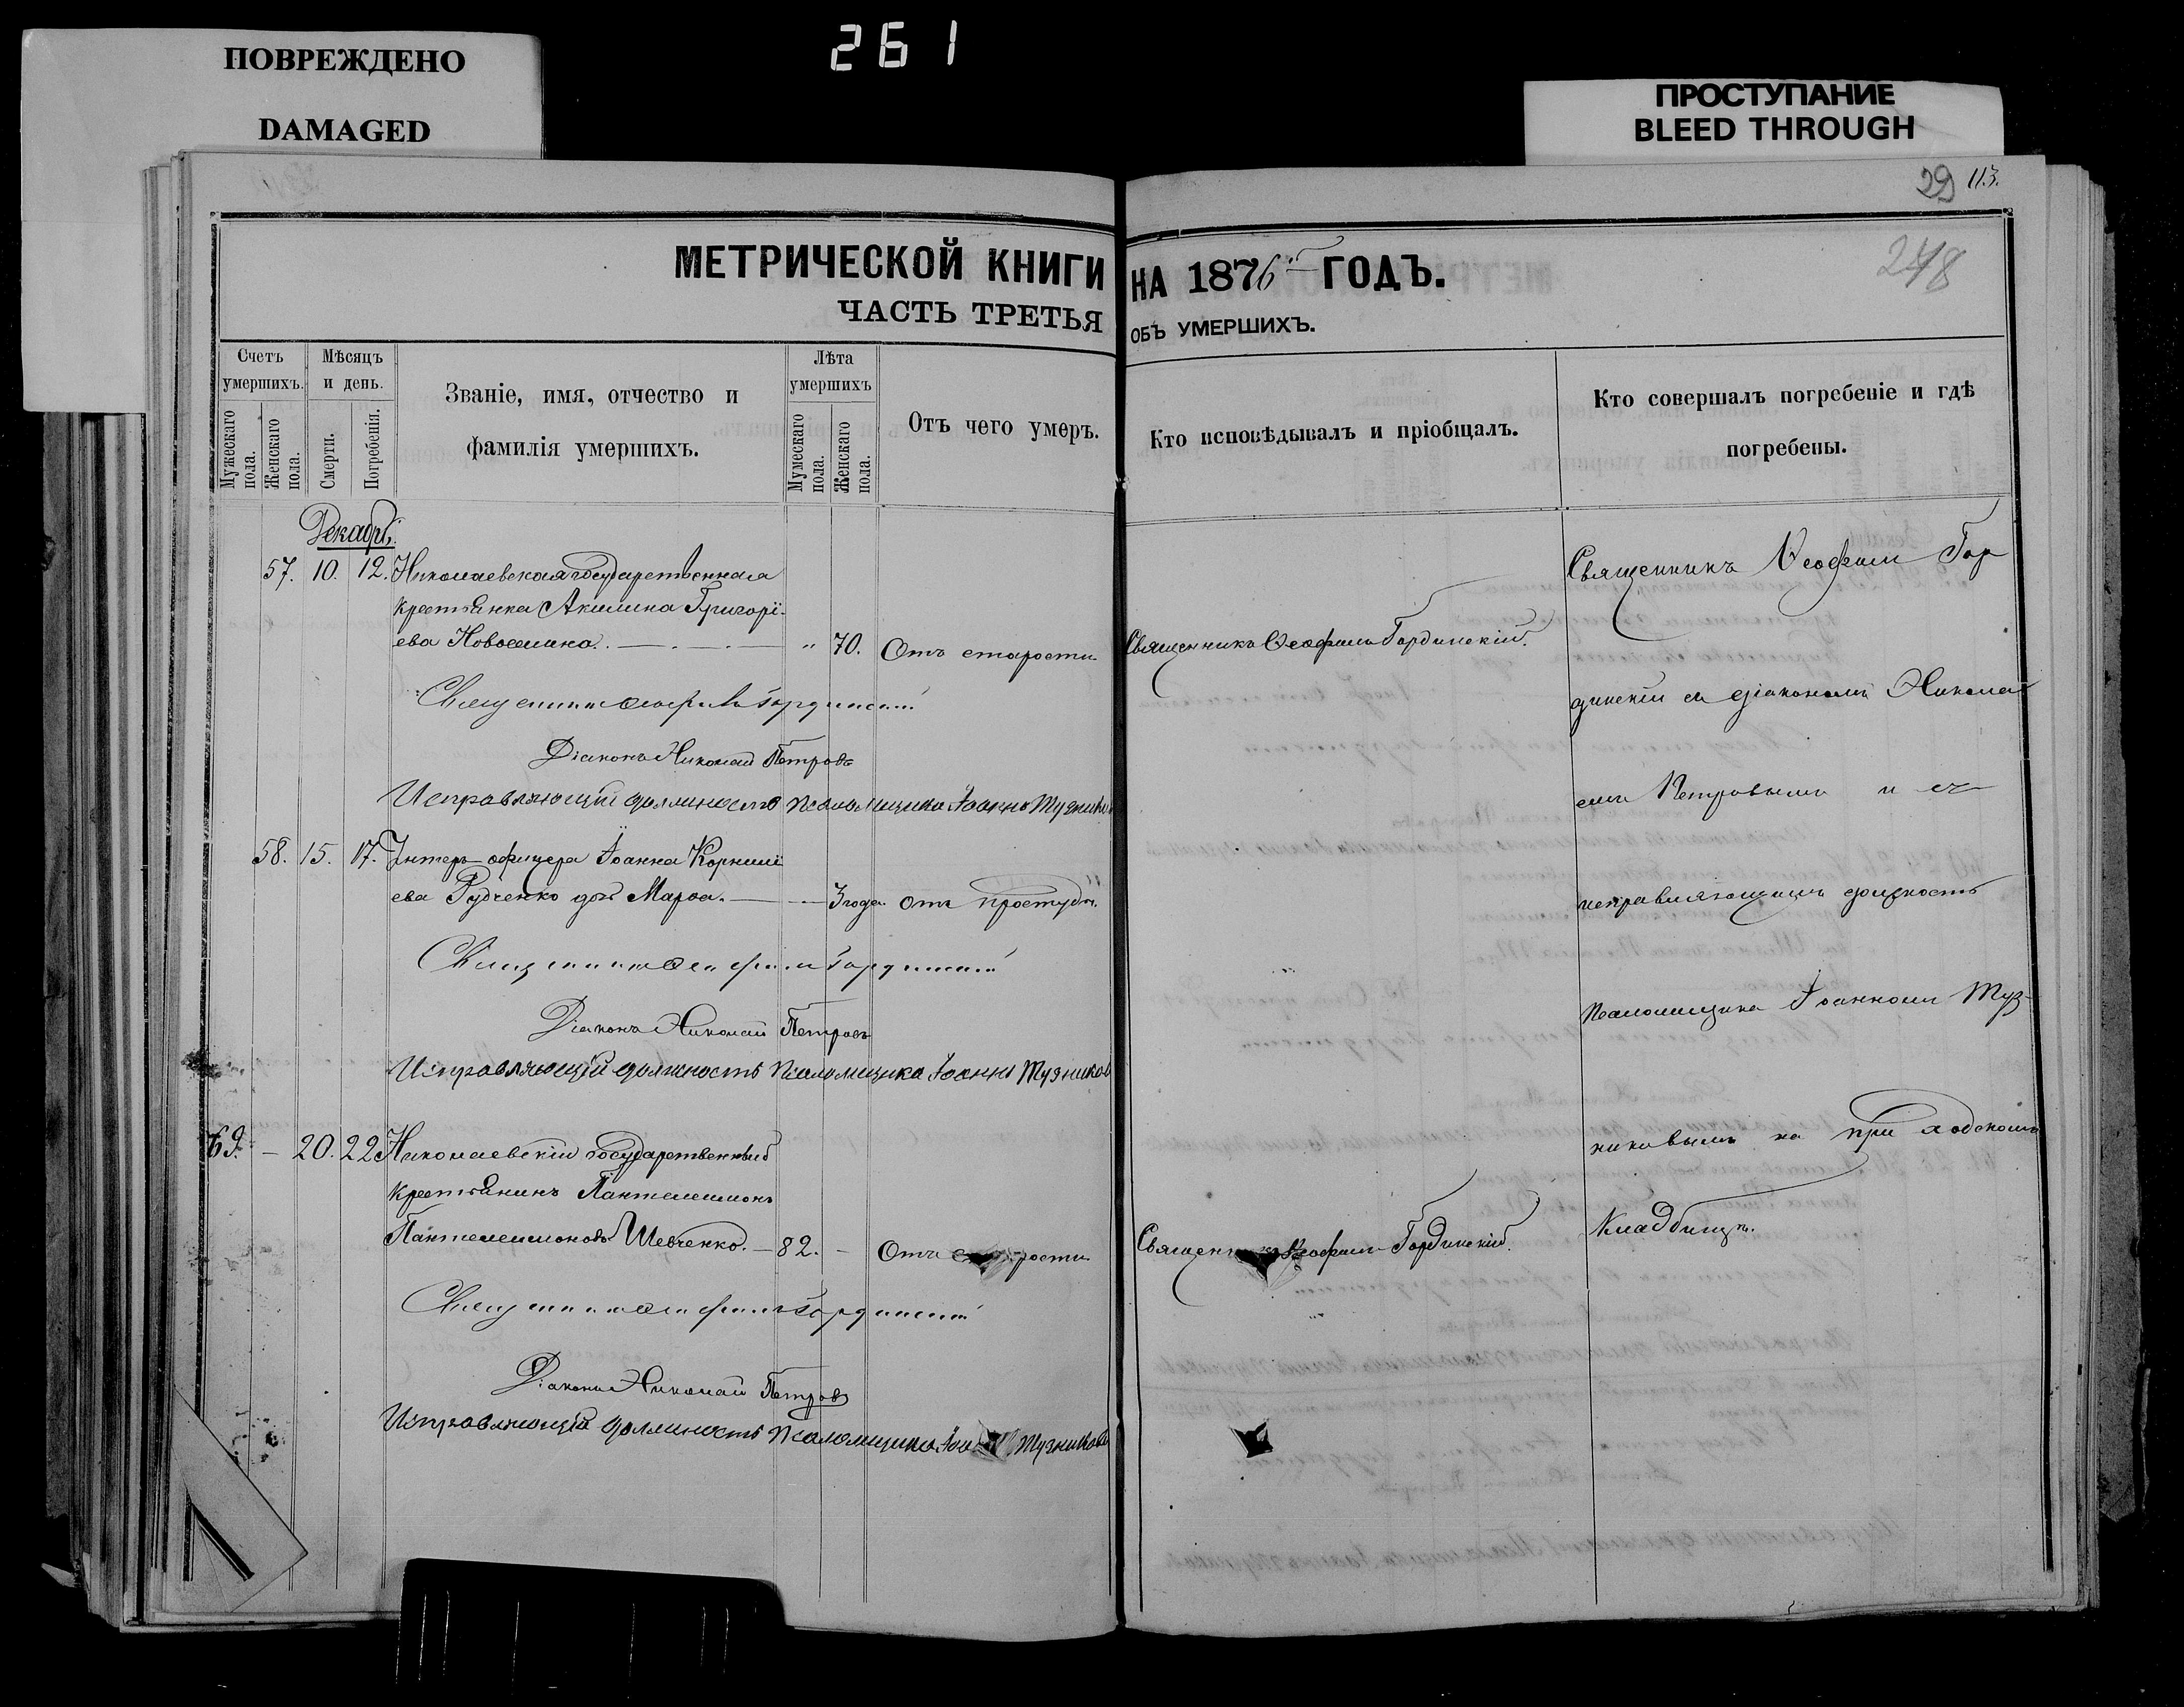 ПОВРЕЖДЕНО
DAMAGED
261
ПРОСТУПАНИЕ
BLEED THROUGH
29 113.
248
МЕТРИЧЕСКОЙ КНИГИ НА 1876 ГОДЪ.
ЧАСТЬ ТРЕТЬЯ ОБЪ УМЕРШИХЪ.
Счетъ умершихъ.
Мужескаго пола.
Женскаго пола.
Мѣсяцъ и день.
Смерти.
Погребенія.
Званіе, имя, отчество и
фамилія умершихъ.
Лѣта умершихъ
Мужескаго пола.
Женскаго пола.
Отъ чего умеръ.
Кто исповѣдывалъ и пріобщалъ.
Кто совершалъ погребеніе и гдѣ
погребены.
Декабрь
57. 10. 12. Николаевская государственная
крестьянка Акилина Григорі-
ева Новоселика. — „ 70. Отъ старости Священникъ Ѳеофилъ Гординскій.
Священникъ Ѳеофилъ Гординскій
Діаконъ Николай Петровъ
Исправляющій должность псаломщика Іоаннъ Тузниковъ
58. 15. 17. Унтеръ-офицера Іоанна Корнилі
ева Рудченко дочь Марѳа. — 3 года Отъ простуды.
Священникъ Ѳеофилъ Гординскій
Діаконъ Николай Петровъ
Исправляющій должность псаломщика Іоаннъ Тузниковъ
69. — 20. 22 Николаевскій государственный
крестьянинъ Пантелеимонъ
Пантелеимоновъ Шевченко. — 82. — Отъ старости Священникъ Ѳеофилъ Гординскій.
Священникъ Ѳеофилъ Гординскій
Діаконъ Николай Петровъ
Исправляющій должность псаломщика Тузниковъ
Священникъ Ѳеофилъ Гор
динскій съ діакономъ Никола
емъ Петровымъ и съ
исправляющимъ должность
псаломщика Іоанномъ Туз-
никовымъ на приходскомъ
кладбищѣ.